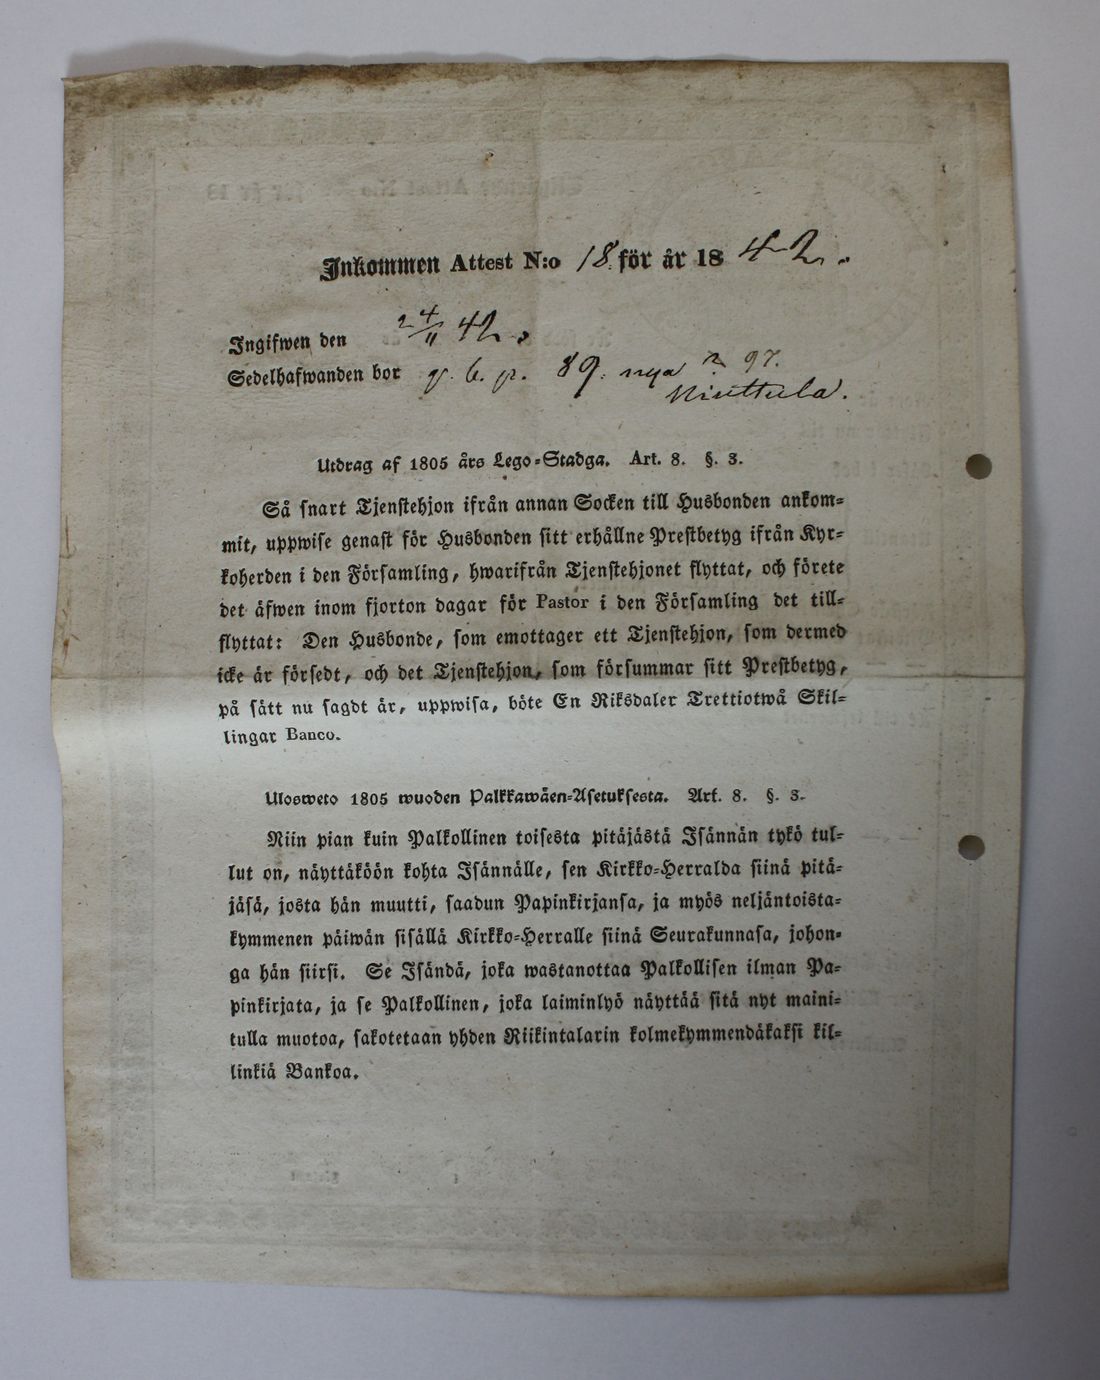 Inkommen Attest N:o 18. för år 1842.
Ingifwen den 24/11 42.
Sedelhafwanden bor g. b. p. 89. nya 97.
Niuttula.
Utdrag af 1805 års Lego-Stadga. Art. 8. §. 3.
Så snart Tjenstehjon ifrån annan Socken till Husbonden ankom-
mit, uppwise genast för Husbonden sitt erhållne Prestbetyg ifrån Kyr-
koherden i den Församling, hwarifrån Tjenstehjonet flyttat, och förete
det äfwen inom fjorton dagar för Pastor i den Församling det till-
flyttat: Den Husbonde, som emottager ett Tjenstehjon, som dermed
icke är försedt, och det Tjenstehjon, som försummar sitt Prestbetyg,
på sätt nu sagdt är, uppwisa, böte En Riksdaler Trettiotwå Skil-
lingar Banco.
Ulosweto 1805 wuoden Palkkawäen-Asetuksesta. Art. 8. §. 3.
Niin pian kuin Palkollinen toisesta pitäjästä Isännän tykö tul-
lut on, näyttäköön kohta Isännälle, sen Kirkko-Herralda siinä pitä-
jäsä, josta hän muutti, saadun Papinkirjansa, ja myös neljäntoista-
kymmenen päiwän sisällä Kirkko-Herralle siinä Seurakunnasa, johon-
ga hän siirsi. Se Isändä, joka wastanottaa Palkollisen ilman Pa-
pinkirjata, ja se Palkollinen, joka laiminlyö näyttää sitä nyt maini-
tulla muotoa, sakotetaan yhden Riikintalarin kolmekymmendäkaksi kil-
linkiä Bankoa.